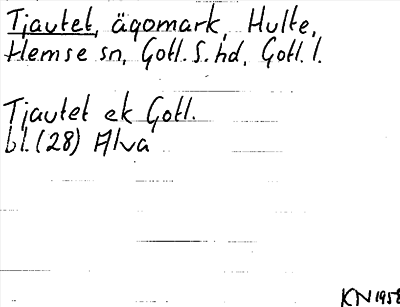 Tjautet, ägomark, Hulte,
Hemse sn, Gotl. S. hd, Gotl. l.
Tjautet ek Gotl.
bl. (28) Alva
KN 1958